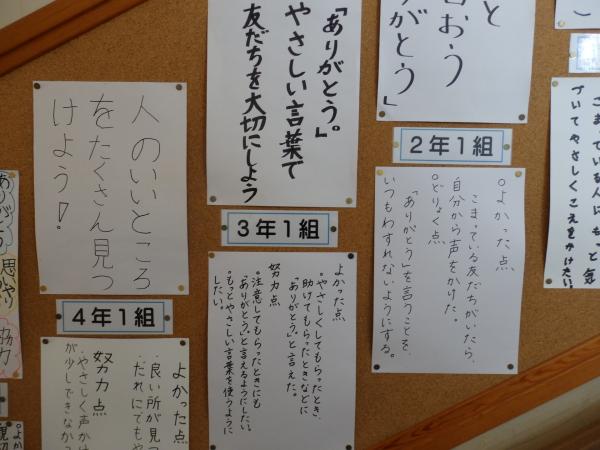 こまっている人にもっと気
づいてやさしくこえをかけたい。
と
言おう
がとう」
2年1組
○よかった点
こまっている友だちがいたら、
自分から声をかけた。
○どりょく点
「ありがとう」を言うことを、
いつもわすれないようにする。
「ありがとう。」
やさしい言葉で
友だちを大切にしよう
3年1組
よかった点
○やさしくしてもらったとき、
助けてもらったときなどに
「ありがとう。」と言えた。
努力点
○注意してもらったときにも
「ありがとう。」と言えるようにしたい。
○もっとやさしい言葉を使うように
したい。
人のいいところ
をたくさん見つ
けよう!
4年1組
よかった点
・良い所が見つ
・だれにでもや
努力点
・やさしく声かけ
が少しできなかっ
思いやり
ありがとう
協力